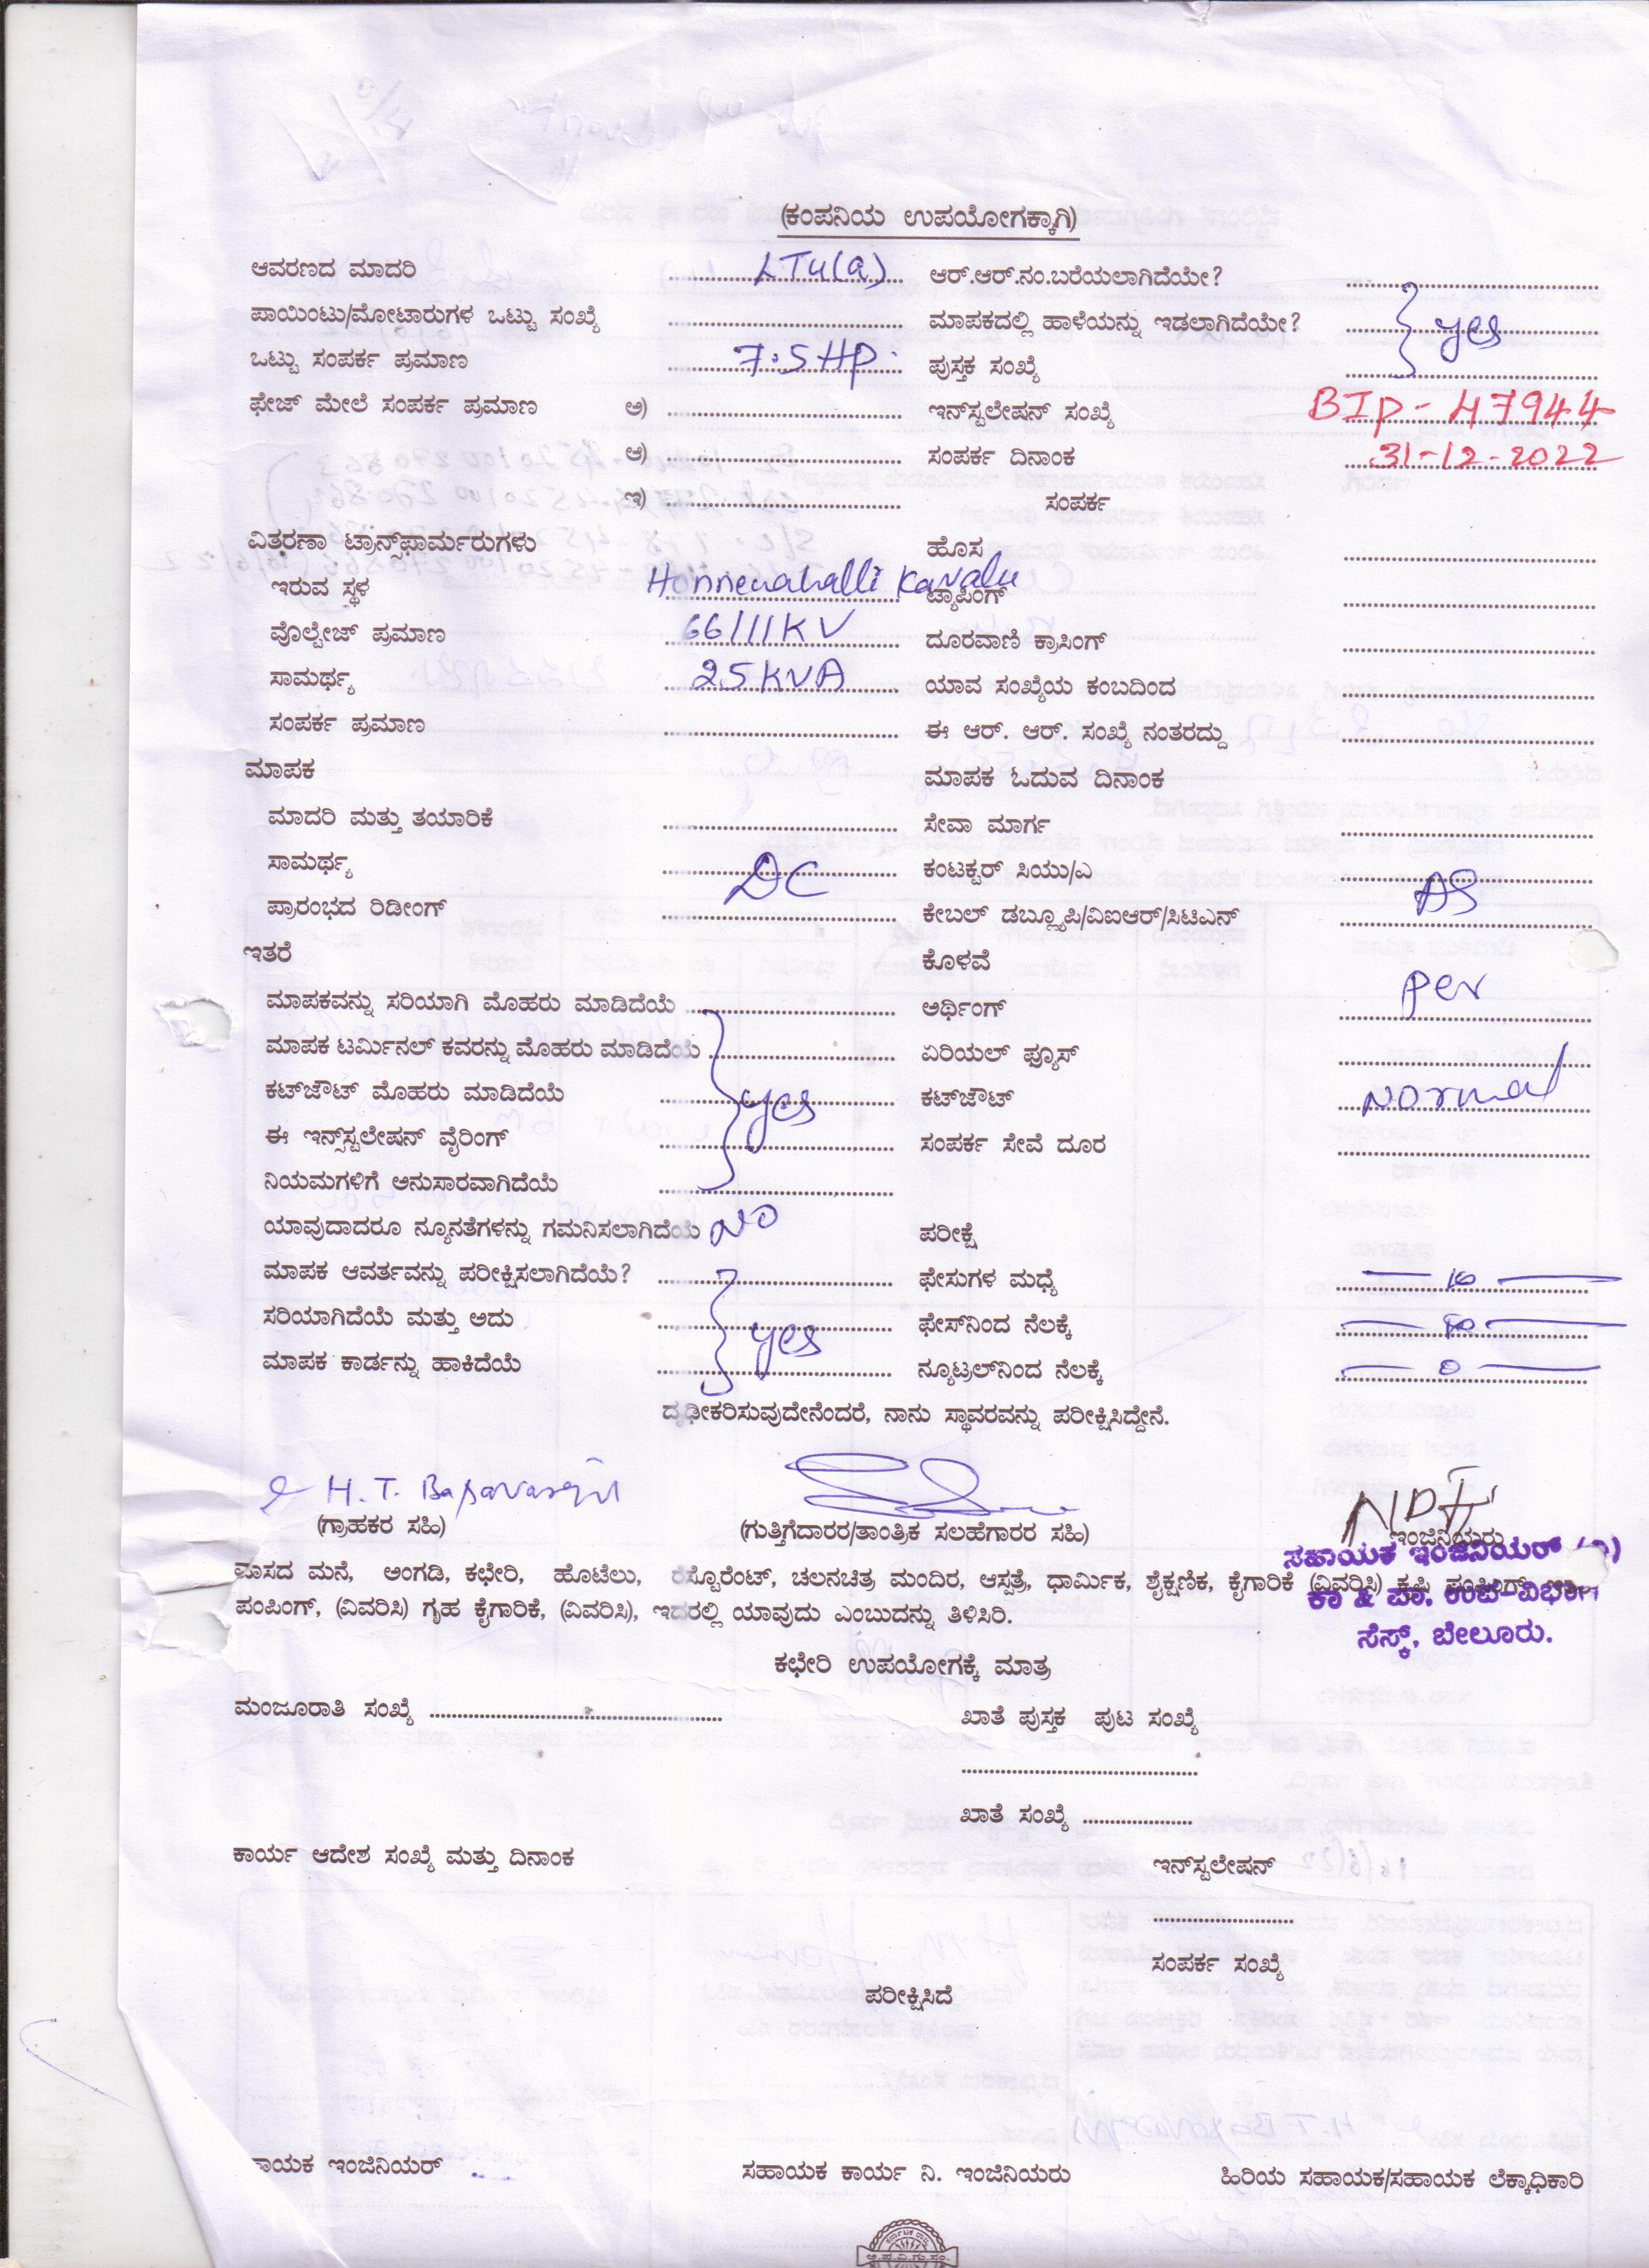 (ಕಂಪನಿಯ ಉಪಯೋಗಕ್ಕಾಗಿ)
ಆವರಣದ ಮಾದರಿ LT4(a) ಆರ್.ಆರ್.ನಂ.ಬರೆಯಲಾಗಿದೆಯೇ?
ಪಾಯಿಂಟು/ಮೋಟಾರುಗಳ ಒಟ್ಟು ಸಂಖ್ಯೆ ಮಾಪಕದಲ್ಲಿ ಹಾಳೆಯನ್ನು ಇಡಲಾಗಿದೆಯೇ? yes
ಒಟ್ಟು ಸಂಪರ್ಕ ಪ್ರಮಾಣ 7.5 HP ಪುಸ್ತಕ ಸಂಖ್ಯೆ
ಫೇಜ್ ಮೇಲೆ ಸಂಪರ್ಕ ಪ್ರಮಾಣ ಅ) ಇನ್‌ಸ್ಟಲೇಷನ್ ಸಂಖ್ಯೆ BIP-47944
ಆ) ಸಂಪರ್ಕ ದಿನಾಂಕ 31-12-2022
ಇ) ಸಂಪರ್ಕ
ವಿತರಣಾ ಟ್ರಾನ್ಸ್‌ಫಾರ್ಮರುಗಳು ಹೊಸ
ಇರುವ ಸ್ಥಳ Honnenahalli Kavalu ಟ್ಯಾಪಿಂಗ್
ವೊಲ್ಟೇಜ್ ಪ್ರಮಾಣ 66/11KV ದೂರವಾಣಿ ಕ್ರಾಸಿಂಗ್
ಸಾಮರ್ಥ್ಯ 25KVA ಯಾವ ಸಂಖ್ಯೆಯ ಕಂಬದಿಂದ
ಸಂಪರ್ಕ ಪ್ರಮಾಣ ಈ ಆರ್. ಆರ್. ಸಂಖ್ಯೆ ನಂತರದ್ದು
ಮಾಪಕ ಮಾಪಕ ಓದುವ ದಿನಾಂಕ
ಮಾದರಿ ಮತ್ತು ತಯಾರಿಕೆ ಸೇವಾ ಮಾರ್ಗ
ಸಾಮರ್ಥ್ಯ DC ಕಂಟಕ್ಟರ್ ಸಿಯು/ಎ
ಪ್ರಾರಂಭದ ರಿಡೀಂಗ್ ಕೇಬಲ್ ಡಬ್ಲ್ಯೂಪಿ/ವಿಐಆರ್/ಸಿಟಿಎನ್ AS
ಇತರೆ ಕೊಳವೆ
ಮಾಪಕವನ್ನು ಸರಿಯಾಗಿ ಮೊಹರು ಮಾಡಿದೆಯೆ ಅರ್ಥಿಂಗ್ per
ಮಾಪಕ ಟರ್ಮಿನಲ್ ಕವರನ್ನು ಮೊಹರು ಮಾಡಿದೆಯೆ ಏರಿಯಲ್ ಫ್ಯೂಸ್
ಕಟ್‌ಔಟ್ ಮೊಹರು ಮಾಡಿದೆಯೆ yes ಕಟ್‌ಔಟ್ Normal
ಈ ಇನ್‌ಸ್ಟಲೇಷನ್ ವೈರಿಂಗ್ ಸಂಪರ್ಕ ಸೇವೆ ದೂರ
ನಿಯಮಗಳಿಗೆ ಅನುಸಾರವಾಗಿದೆಯೆ
ಯಾವುದಾದರೂ ನ್ಯೂನತೆಗಳನ್ನು ಗಮನಿಸಲಾಗಿದೆಯೆ NO ಪರೀಕ್ಷೆ
ಮಾಪಕ ಆವರ್ತವನ್ನು ಪರೀಕ್ಷಿಸಲಾಗಿದೆಯೆ? ಫೇಸುಗಳ ಮಧ್ಯೆ
ಸರಿಯಾಗಿದೆಯೆ ಮತ್ತು ಅದು yes ಫೇಸ್‌ನಿಂದ ನೆಲಕ್ಕೆ
ಮಾಪಕ ಕಾರ್ಡನ್ನು ಹಾಕಿದೆಯೆ ನ್ಯೂಟ್ರಲ್‌ನಿಂದ ನೆಲಕ್ಕೆ 0
ದೃಢೀಕರಿಸುವುದೇನೆಂದರೆ, ನಾನು ಸ್ಥಾವರವನ್ನು ಪರೀಕ್ಷಿಸಿದ್ದೇನೆ.
H. T.
(ಗ್ರಾಹಕರ ಸಹಿ) (ಗುತ್ತಿಗೆದಾರರ/ತಾಂತ್ರಿಕ ಸಲಹೆಗಾರರ ಸಹಿ) ಇಂಜಿನಿಯರು
ಸಹಾಯಕ ಇಂಜಿನಿಯರ್
ವಾಸದ ಮನೆ, ಅಂಗಡಿ, ಕಛೇರಿ, ಹೊಟೆಲು, ರೆಸ್ಟೊರೆಂಟ್, ಚಲನಚಿತ್ರ ಮಂದಿರ, ಆಸ್ಪತ್ರೆ, ಧಾರ್ಮಿಕ, ಶೈಕ್ಷಣಿಕ, ಕೈಗಾರಿಕೆ (ವಿವರಿಸಿ) ಕೃಷಿ ಪಂಪಿಂಗ್,
ಪಂಪಿಂಗ್, (ವಿವರಿಸಿ) ಗೃಹ ಕೈಗಾರಿಕೆ, (ವಿವರಿಸಿ), ಇದರಲ್ಲಿ ಯಾವುದು ಎಂಬುದನ್ನು ತಿಳಿಸಿರಿ.
ಕಾ & ಪಾ. ಉಪ-ವಿಭಾಗ
ಸೆಸ್ಕ್, ಬೇಲೂರು.
ಕಛೇರಿ ಉಪಯೋಗಕ್ಕೆ ಮಾತ್ರ
ಮಂಜೂರಾತಿ ಸಂಖ್ಯೆ ಖಾತೆ ಪುಸ್ತಕ ಪುಟ ಸಂಖ್ಯೆ
ಖಾತೆ ಸಂಖ್ಯೆ
ಕಾರ್ಯ ಆದೇಶ ಸಂಖ್ಯೆ ಮತ್ತು ದಿನಾಂಕ ಇನ್‌ಸ್ಟಲೇಷನ್
ಸಂಪರ್ಕ ಸಂಖ್ಯೆ
ಪರೀಕ್ಷಿಸಿದೆ
ಾಯಕ ಇಂಜಿನಿಯರ್ ಸಹಾಯಕ ಕಾರ್ಯ ನಿ. ಇಂಜಿನಿಯರು ಹಿರಿಯ ಸಹಾಯಕ/ಸಹಾಯಕ ಲೆಕ್ಕಾಧಿಕಾರಿ